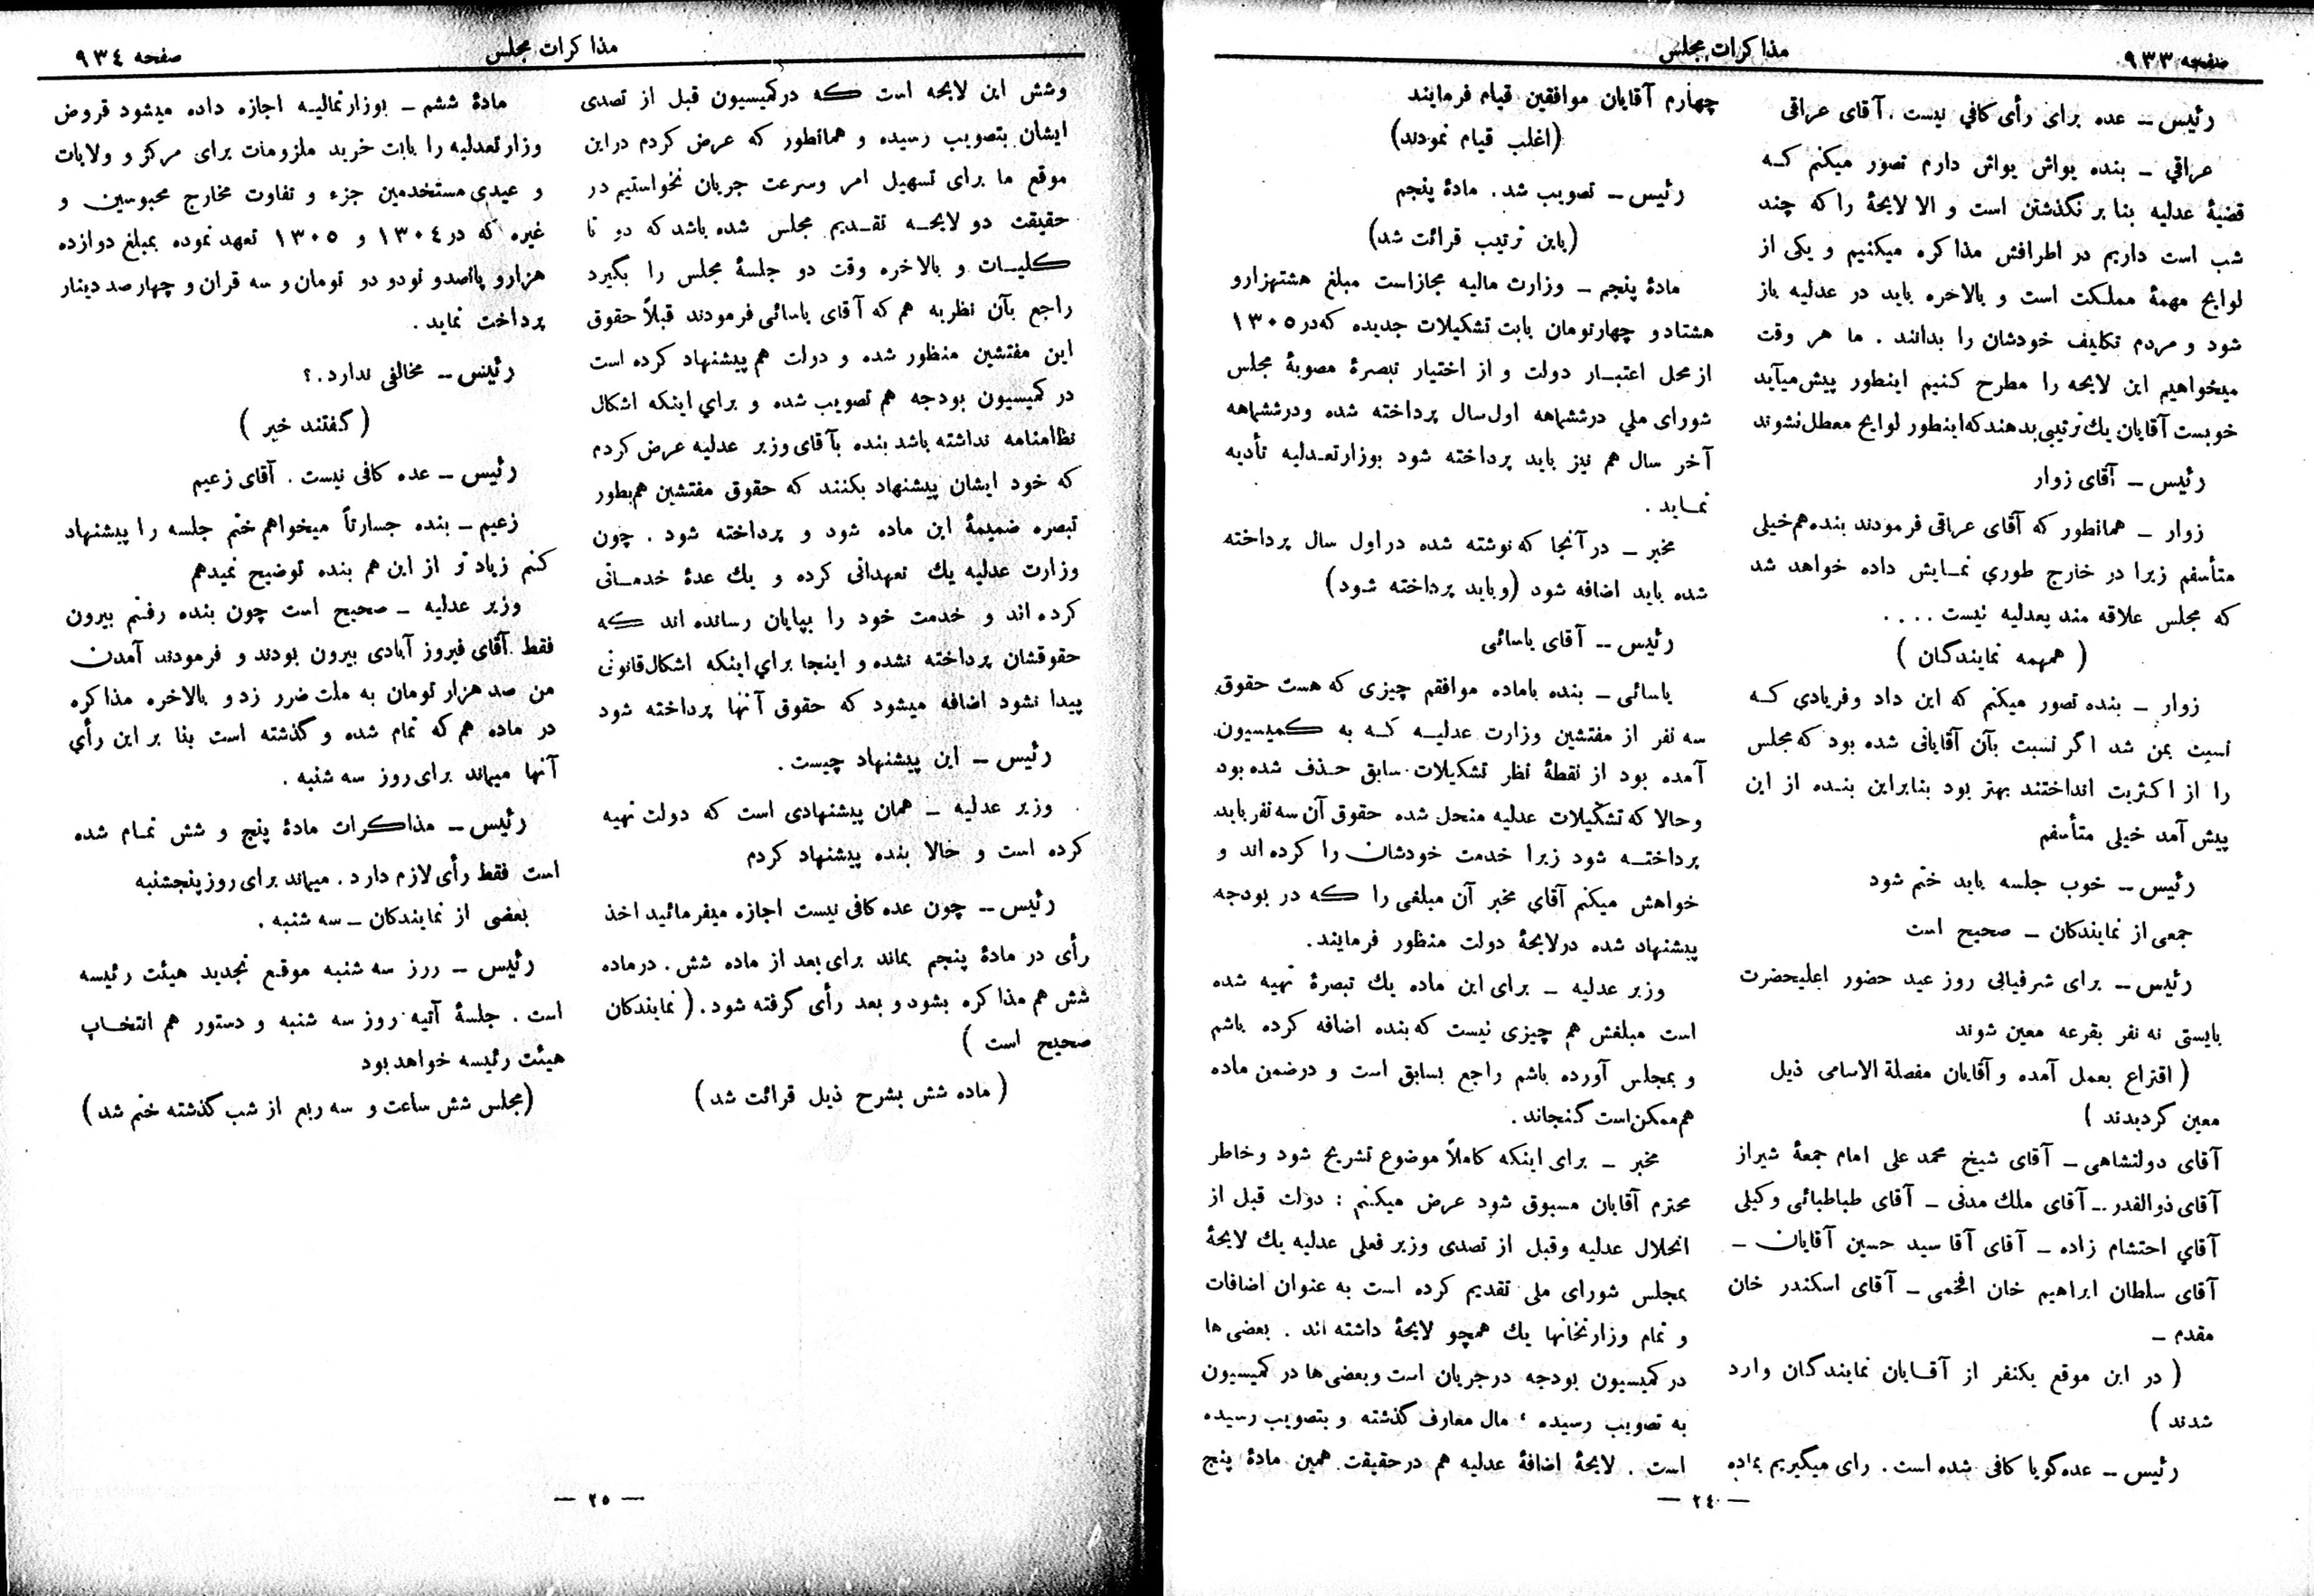 صفحه ۹۳۳
مذاکرات مجلس
رئیس ــ عده برای رأی کافی نیست . آقای عراقی
عراقی ــ بنده یواش یواش دارم تصور میکنم که
قضیهٔ عدلیه بنا بر نگذشتن است و الا لایحهٔ را که چند
شب است داریم در اطرافش مذاکره میکنیم و یکی از
لوایح مهمهٔ مملکت است و بالاخره باید در عدلیه باز
شود و مردم تکلیف خودشان را بدانند . ما هر وقت
میخواهیم این لایحه را مطرح کنیم اینطور پیش میآید
خوبست آقایان یک ترتیبی بدهند که اینطور لوایح معطل نشوند
رئیس ــ آقای زوار
زوار ــ همانطور که آقای عراقی فرمودند بنده هم خیلی
متأسفم زیرا در خارج طوری نمایش داده خواهد شد
که مجلس علاقه مند بعدلیه نیست . . . .
( همهمه نمایندگان )
زوار ــ بنده تصور میکنم که این داد و فریادی که
نسبت بمن شد اگر نسبت بآن آقایانی شده بود که مجلس
را از اکثریت انداختند بهتر بود بنابراین بنده از این
پیش آمد خیلی متأسفم
رئیس ــ خوب جلسه باید ختم شود
جمعی از نمایندکان ــ صحیح است
رئیس ــ برای شرفیابی روز عید حضور اعلیحضرت
بایستی نه نفر بقرعه معین شوند
( اقتراع بعمل آمده و آقایان مفصلة الاسامی ذیل
معین کردیدند )
آقای دولتشاهی ــ آقای شیخ محمد علی امام جمعهٔ شیراز
آقای ذوالقدر ــ آقای ملک مدنی ــ آقای طباطبائی وکیلی
آقای احتشام زاده ــ آقای آقا سید حسین آقایان ــ
آقای سلطان ابراهیم خان افخمی ــ آقای اسکندر خان
مقدم ــ
( در این موقع یکنفر از آقایان نمایندگان وارد
شدند )
رئیس ــ عده گویا کافی شده است . رای میگیریم بماده
چهارم آقایان موافقین قیام فرمایند
(اغلب قیام نمودند)
رئیس ــ تصویب شد . مادهٔ پنجم
(باین ترتیب قرائت شد)
مادهٔ پنجم ــ وزارت مالیه مجاز است مبلغ هشتهزارو
هشتاد و چهارتومان بابت تشکیلات جدیده که در ۱۳۰۵
از محل اعتبار دولت و از اختیار تبصرهٔ مصوبهٔ مجلس
شورای ملی در ششماهه اول سال پرداخته شده و در ششماهه
آخر سال هم نیز باید پرداخته شود بوزارتعدلیه تأدیه
نماید .
مخبر ــ در آنجا که نوشته شده در اول سال پرداخته
شده باید اضافه شود (و باید پرداخته شود)
رئیس ــ آقای یاسائی
یاسائی ــ بنده باماده موافقم چیزی که هست حقوق
سه نفر از مفتشین وزارت عدلیه که به کمیسیون
آمده بود از نقطهٔ نظر تشکیلات سابق حذف شده بود
و حالا که تشکیلات عدلیه منحل شده حقوق آن سه نفر باید
پرداخته شود زیرا خدمت خودشان را کرده اند و
خواهش میکنم آقای مخبر آن مبلغی را که در بودجه
پیشنهاد شده در لایحهٔ دولت منظور فرمایند .
وزیر عدلیه ــ برای این ماده یک تبصرهٔ تهیه شده
است مبلغش هم چیزی نیست که بنده اضافه کرده باشم
و بمجلس آورده باشم راجع بسابق است و در ضمن ماده
هم ممکن است گنجاند .
مخبر ــ برای اینکه کاملاً موضوع تشریح شود و خاطر
محترم آقایان مسبوق شود عرض میکنم : دولت قبل از
انحلال عدلیه و قبل از تصدی وزیر فعلی عدلیه یک لایحهٔ
بمجلس شورای ملی تقدیم کرده است به عنوان اضافات
و تمام وزارتخانها یک همچو لایحهٔ داشته اند . بعضی ها
در کمیسیون بودجه در جریان است و بعضی ها در کمیسیون
به تصویب رسیده ، مال معارف گذشته و بتصویب رسیده
است . لایحهٔ اضافهٔ عدلیه هم در حقیقت همین مادهٔ پنج
ــ ۲۴ ــ
مذاکرات مجلس
صفحه ۹۳۴
وشش این لایحه است که در کمیسیون قبل از تصدی
ایشان بتصویب رسیده و همانطور که عرض کردم در این
موقع ما برای تسهیل امر وسرعت جریان نخواستیم در
حقیقت دو لایحه تقدیم مجلس شده باشد که دو تا
کلیات و بالاخره وقت دو جلسهٔ مجلس را بگیرد
راجع بآن نظریه هم که آقای یاسائی فرمودند قبلاً حقوق
این مفتشین منظور شده و دولت هم پیشنهاد کرده است
در کمیسیون بودجه هم تصویب شده و برای اینکه اشکال
نظامنامه نداشته باشد بنده بآقای وزیر عدلیه عرض کردم
که خود ایشان پیشنهاد بکنند که حقوق مفتشین هم بطور
تبصره ضمیمهٔ این ماده شود و پرداخته شود . چون
وزارت عدلیه یک تعهداتی کرده و یک عدهٔ خدماتی
کرده اند و خدمت خود را بپایان رسانده اند که
حقوقشان پرداخته نشده و اینجا برای اینکه اشکال قانونی
پیدا نشود اضافه میشود که حقوق آنها پرداخته شود
رئیس ــ این پیشنهاد چیست .
وزیر عدلیه ــ همان پیشنهادی است که دولت تهیه
کرده است و حالا بنده پیشنهاد کردم
رئیس ــ چون عده کافی نیست اجازه میفرمائید اخذ
رأی در مادهٔ پنجم بماند برای بعد از ماده شش . در ماده
شش هم مذاکره بشود و بعد رأی گرفته شود . ( نمایندکان
صحیح است )
( ماده شش بشرح ذیل قرائت شد )
مادهٔ ششم ــ بوزارتمالیه اجازه داده میشود قروض
وزارتعدلیه را بابت خرید ملزومات برای مرکز و ولایات
و عیدی مستخدمین جزء و تفاوت مخارج محبوسین و
غیره که در ۱۳۰۴ و ۱۳۰۵ تعهد نموده بمبلغ دوازده
هزارو پانصدو نودو دو تومان و سه قران و چهار صد دینار
پرداخت نماید .
رئیس ــ مخالفی ندارد . ؟
( گفتند خیر )
رئیس ــ عده کافی نیست . آقای زعیم
زعیم ــ بنده جسارتاً میخواهم ختم جلسه را پیشنهاد
کنم زیاد تر از این هم بنده توضیح نمیدهم
وزیر عدلیه ــ صحیح است چون بنده رفتم بیرون
فقط آقای فیروز آبادی بیرون بودند و فرمودند آمدن
من صد هزار تومان به ملت ضرر زد و بالاخره مذاکره
در ماده هم که تمام شده و گذشته است بنا بر این رأی
آنها میماند برای روز سه شنبه .
رئیس ــ مذاکرات مادهٔ پنج و شش تمام شده
است فقط رأی لازم دارد . میماند برای روز پنجشنبه
بعضی از نمایندکان ــ سه شنبه .
رئیس ــ روز سه شنبه موقع تجدید هیئت رئیسه
است . جلسهٔ آتیه روز سه شنبه و دستور هم انتخاب
هیئت رئیسه خواهد بود
(مجلس شش ساعت و سه ربع از شب گذشته ختم شد)
ــ ۲۵ ــ